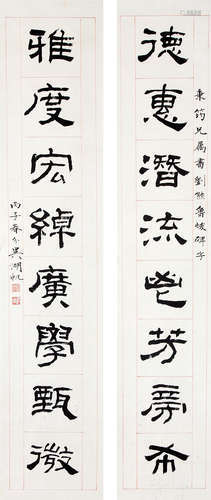 德惠潛流鬯芳旁布
秉筠兄屬書劉熊魯峻碑字
雅度宏綽廣學甄微
丙子春分吳湖帆